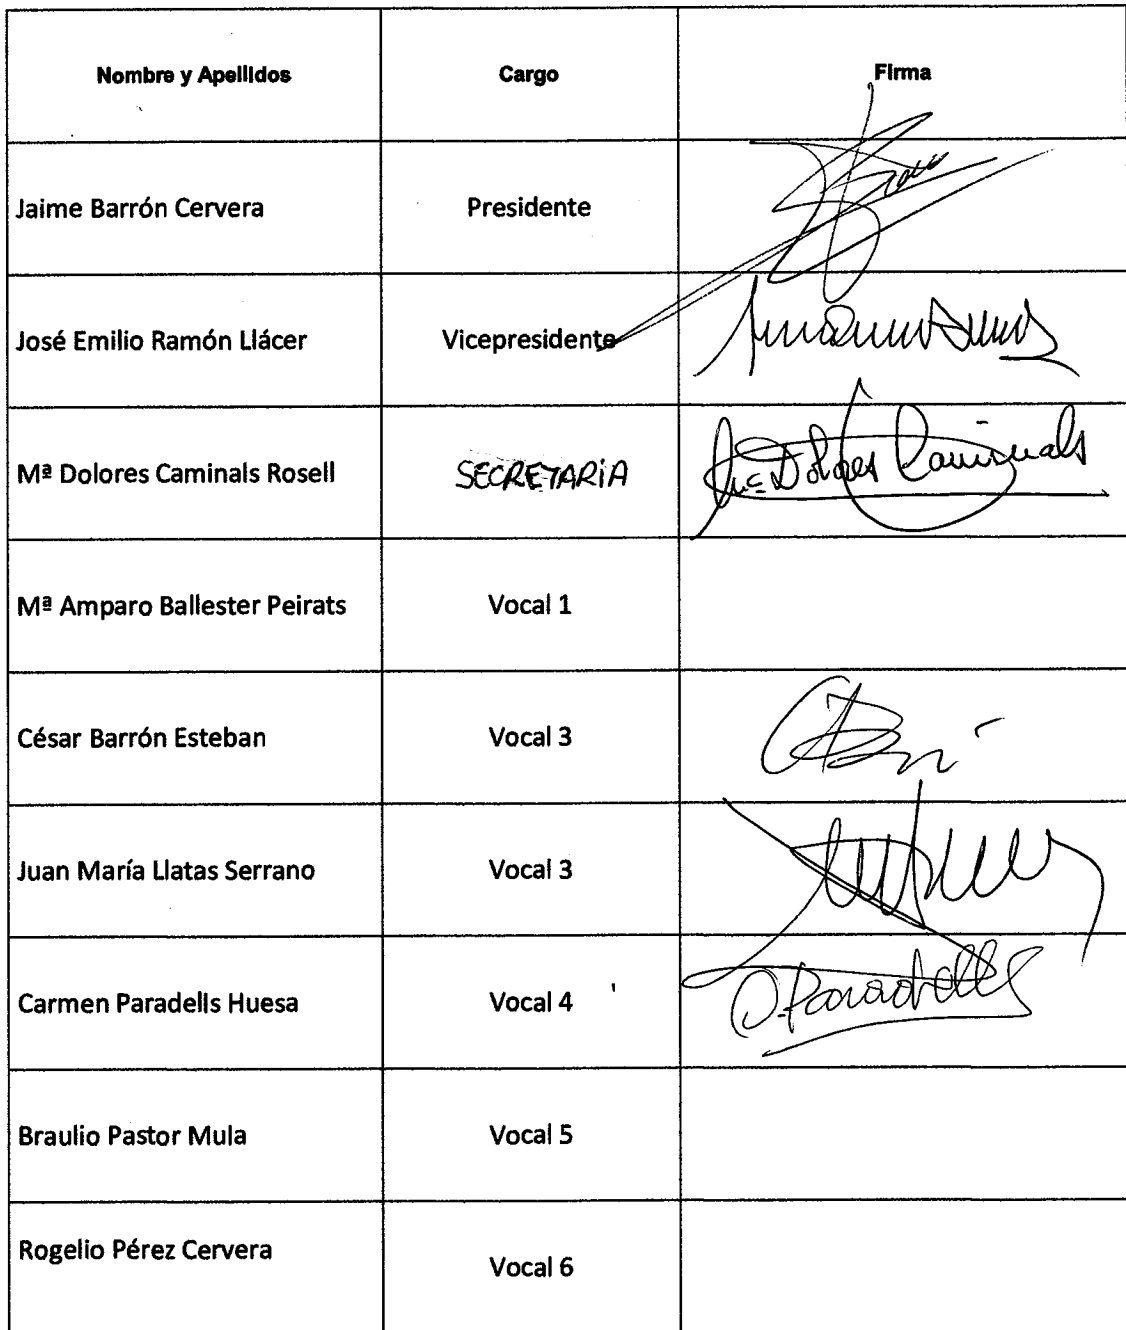 Nombre y Apellidos Cargo Firma
Jaime Barrón Cervera Presidente
José Emilio Ramón Llácer Vicepresidente
Mª Dolores Caminals Rosell SECRETARIA Mª Dolores Caminals
Mª Amparo Ballester Peirats Vocal 1
César Barrón Esteban Vocal 3
Juan María Llatas Serrano Vocal 3
Carmen Paradells Huesa Vocal 4 C. Paradells
Braulio Pastor Mula Vocal 5
Rogelio Pérez Cervera Vocal 6